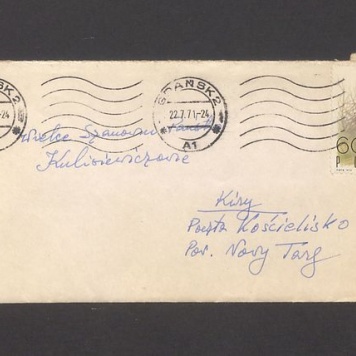 GDAŃSK 2
22.7.71-24
A1
60
Wielce Szanowni Państwo
Kulisiewiczowie
Kiry
Poczta Kościelisko
Pow. Nowy Targ